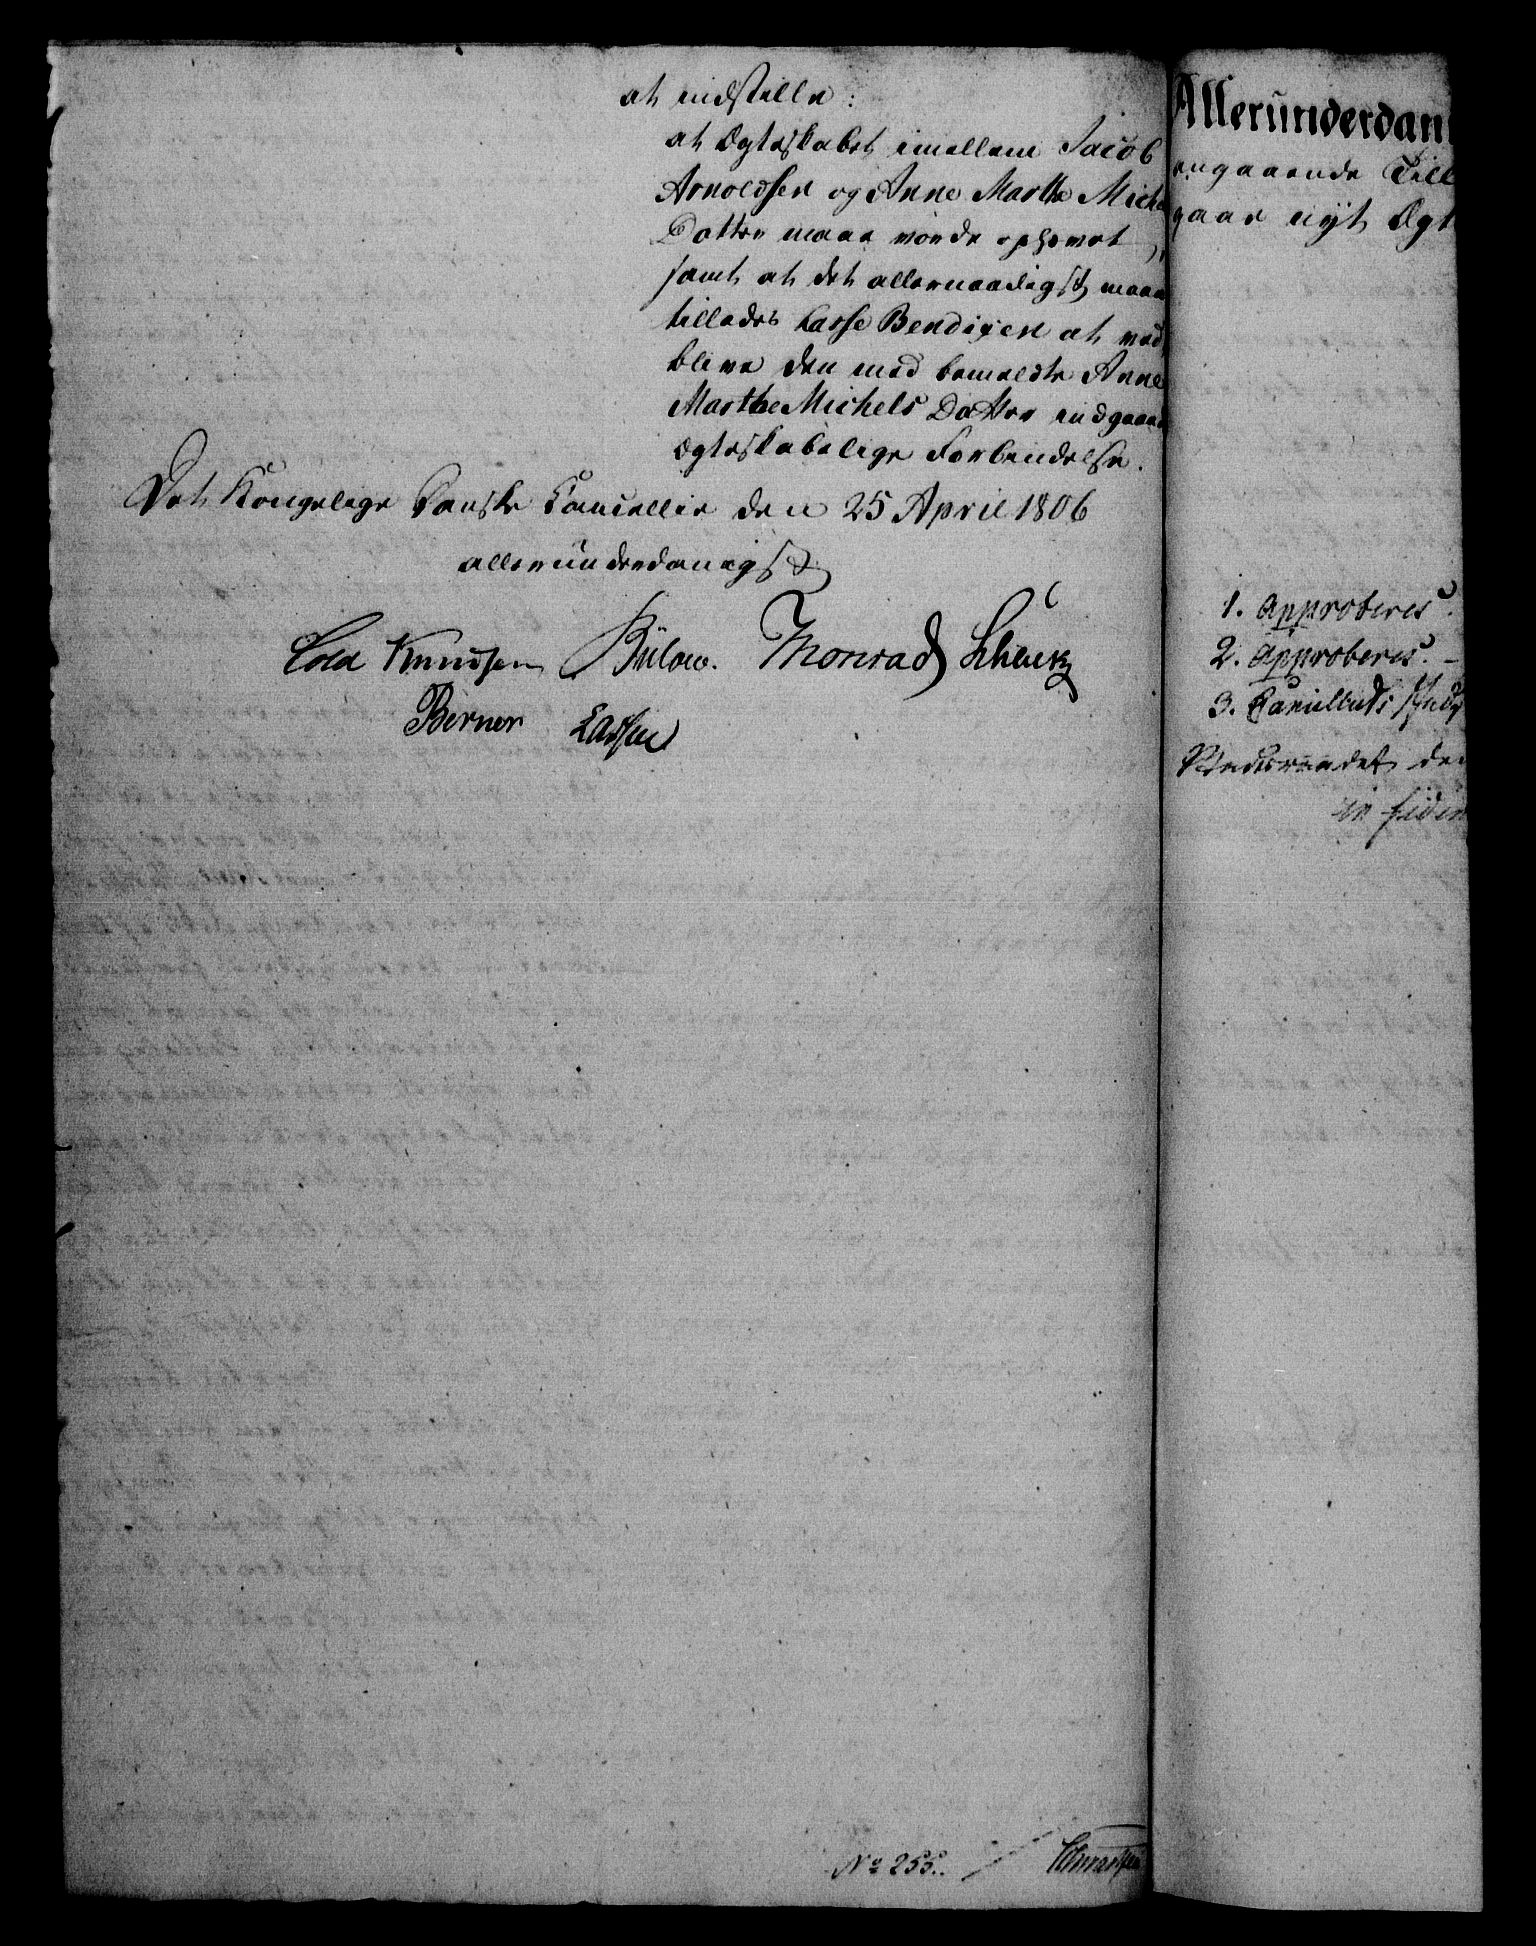 at indstille:
at Ægteskabet imellem Jacob
Arnoldsen og Anne Marthe Miche
Datter maae vorde ophævet,
samt at det allernaadigst maae
tillades Lasse Bendixen at ved
blive den med bemeldte Anne
Marthe Michels Datter indgaaed
Ægteskabelige Forbindelse.
Det Kongelige Danske Cancellie den 25 April 1806
allerunderdanigst
Cold Knudsen Bülow. Monrad Schultz
Berner Lassen
No 255.
Allerunderdan
angaaende Till
gaae nyt Ægt
1. Approberes.
2. Approberes. –
3. Cancelliets Inds
Statsraadet den
in fidem